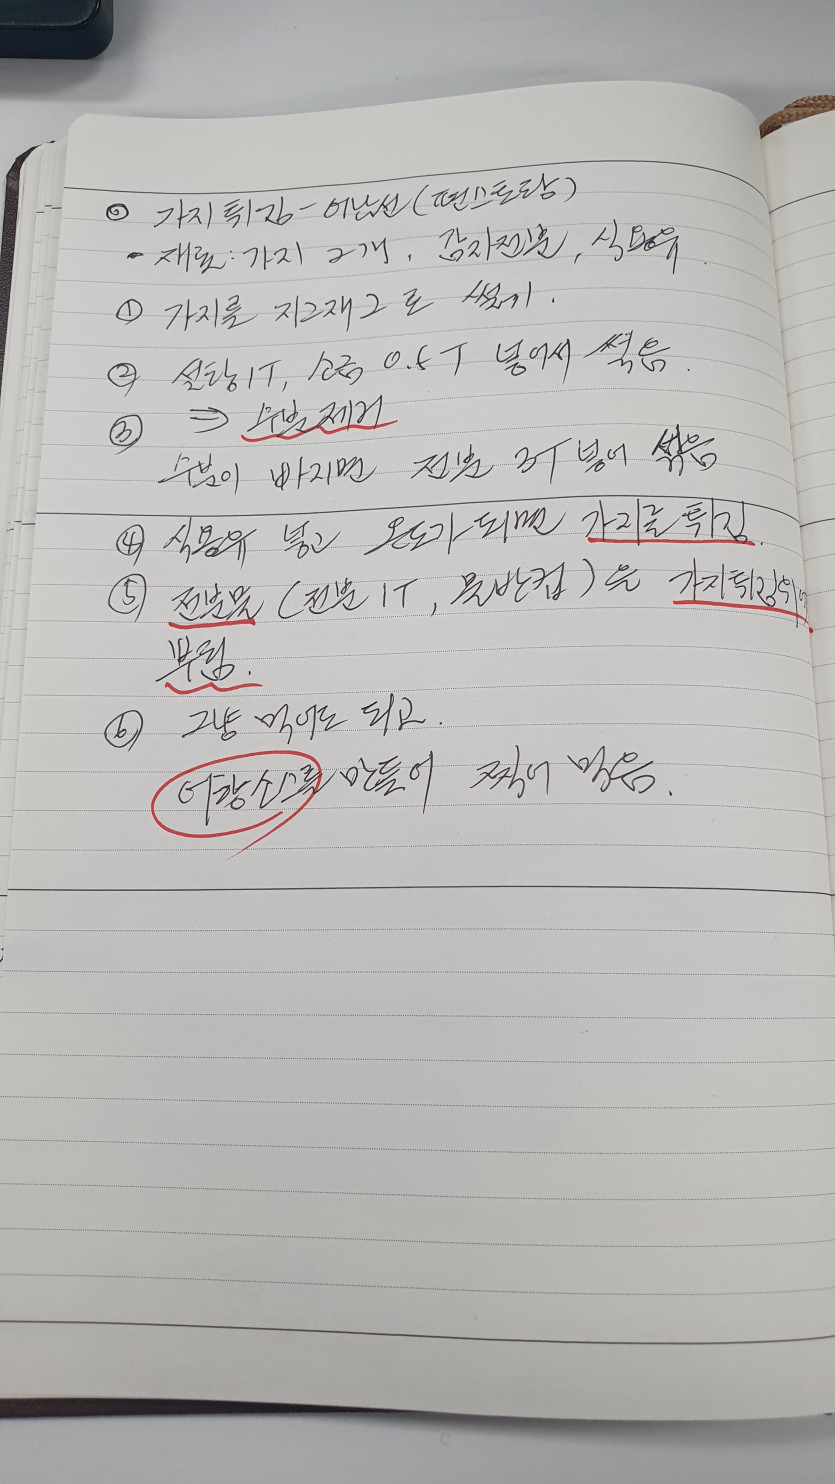 ◎ 가지튀김-어남선(편스토랑)
- 재료:가지 2개, 감자전분, 식용유.
① 가지를 지그재그로 썰기.
② 설탕1T, 소금 0.5T 넣어서 섞음.
③ ⇒ 수분제거
수분이 빠지면 전분 3T 넣어 섞음
④ 식용유 넣고 온도가 되면 가지를 튀김.
⑤ 전분물 (전분 1T, 물반컵)을 가지튀김위에
뿌림.
⑥ 그냥 먹어도 되고.
어향소스를 만들어 찍어 먹음.